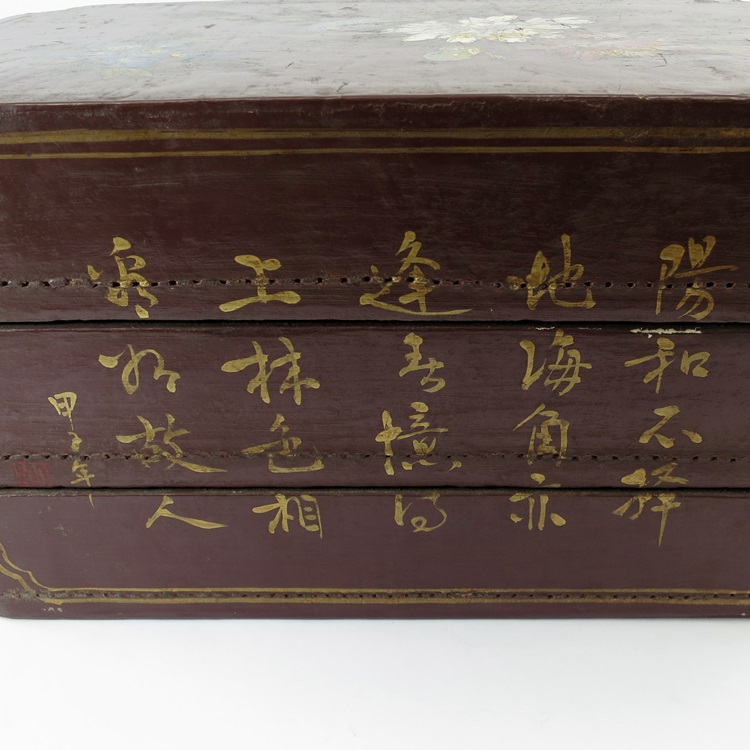 陽和不擇
地海角亦
逢春憶得
上林色相
看如故人
甲子年